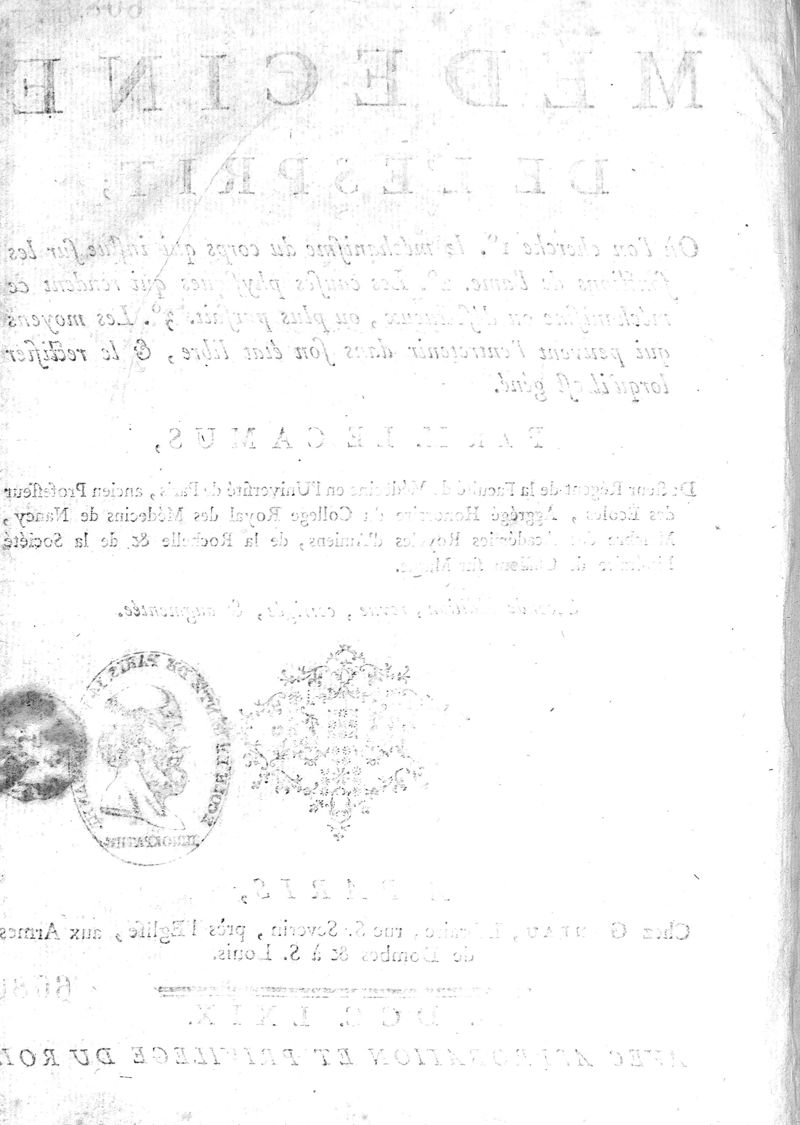 MÉDECINE
DE L'ESPRIT;
Où l'on cherche 1°. le méchanisme du corps qui influe sur les
fonctions de l'ame. 2°. Les causes physiques qui rendent ce
méchanisme ou défectueux, ou plus parfait. 3°. Les moyens
qui peuvent l'entretenir dans son état libre, & le rectifier
lorqu'il est gêné.
PAR M. LE CAMUS,
Docteur Régent de la Faculté de Médecine en l'Université de Paris, ancien Professeur
des Ecoles, Aggrégé Honoraire du College Royal des Médecins de Nancy,
Membre des Académies Royales d'Amiens, de la Rochelle & de la Société
de Châlons sur Marne.
Seconde Edition, revue, corrigée, & augmentée.
DE PARIS
A PARIS,
Chez GANEAU, Libraire, rue S. Severin, près l'Eglise, aux Armes
de Dombes & à S. Louis.
M. DCC. LXIX.
AVEC APPROBATION ET PRIVILEGE DU ROI.